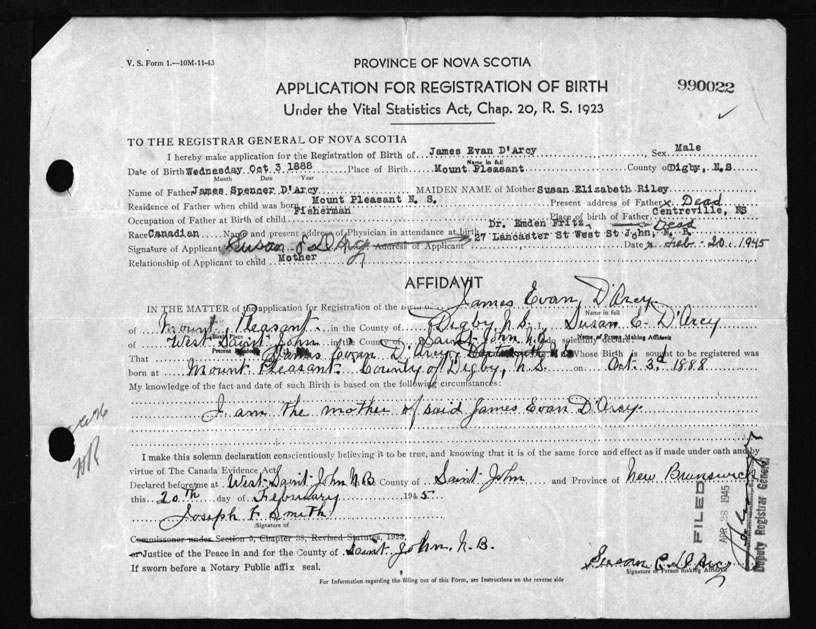 V. S. Form 1.—10M-11-43
PROVINCE OF NOVA SCOTIA
APPLICATION FOR REGISTRATION OF BIRTH
990022
Under the Vital Statistics Act, Chap. 20, R. S. 1923
TO THE REGISTRAR GENERAL OF NOVA SCOTIA
I hereby make application for the Registration of Birth of James Evan D'Arcy Sex Male
Name in full
Date of Birth Wednesday Oct 3 1888 Place of Birth Mount Pleasant County of Digby, N.S
Month Date Year
Name of Father James Spencer D'Arcy MAIDEN NAME of Mother Susan Elizabeth Riley
Residence of Father when child was born Mount Pleasant N. S. Present address of Father x Dead
Occupation of Father at Birth of child Fisherman Place of birth of Father Centreville, NS
Race Canadian Name and present address of Physician in attendance at birth Dr. Emden Fritz, Dead
Signature of Applicant Susan E D'Arcy Address of Applicant 27 Lancaster St West St John, N. B. Date Feb 20 1945
Relationship of Applicant to child Mother
AFFIDAVIT
IN THE MATTER of the application for Registration of the James Evan D'Arcy
Name in full
of Mount Pleasant in the County of Digby, N.S. I, Susan E. D'Arcy
Name of Person Making Affidavit
of West Saint John in the County Saint John N.B. do solemnly declare:
That James Evan D'Arcy, Whose Birth is sought to be registered was
born at Mount Pleasant County of Digby, N.S. on Oct. 3d 1888
My knowledge of the fact and date of such Birth is based on the following circumstances:
I am the mother of said James Evan D'Arcy.
I make this solemn declaration conscientiously believing it to be true, and knowing that it is of the same force and effect as if made under oath and by
virtue of The Canada Evidence Act.
Declared before me at West Saint John N.B County of Saint John and Province of New Brunswick
this 20th day of February 1945.
Joseph F Smith
Signature of
Commissioner under Section 5, Chapter 38, Revised Statutes, 1923,
or Justice of the Peace in and for the County of Saint John, N.B.
If sworn before a Notary Public affix seal.
Susan E. D'Arcy
Signature of Person making Affidavit
For Information regarding the filling out of this Form, see Instructions on the reverse side
FILED
APR 28 1945
Deputy Registrar General